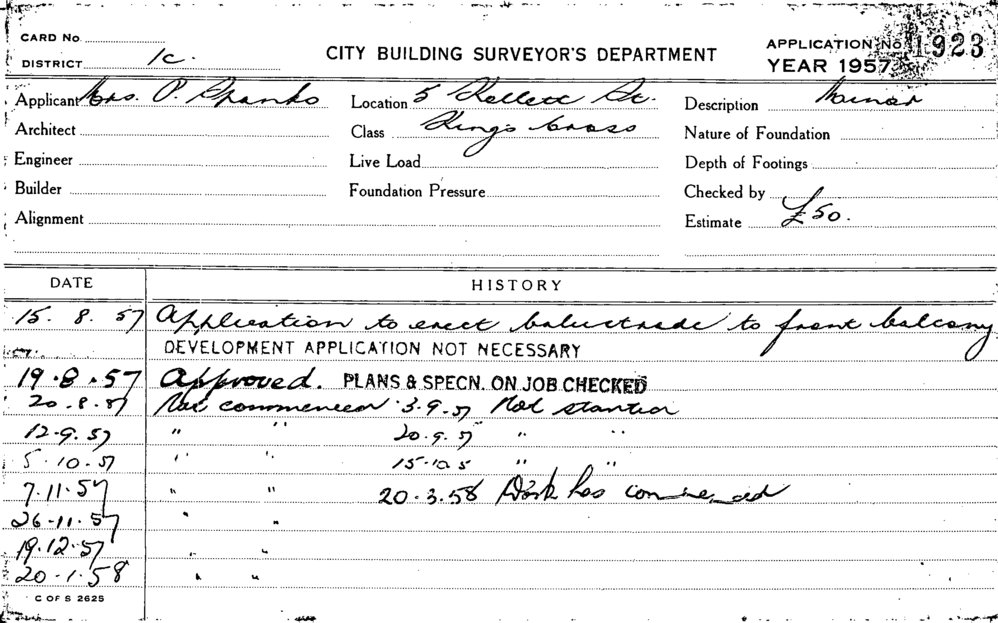 CARD No.
DISTRICT 1c.
CITY BUILDING SURVEYOR'S DEPARTMENT
APPLICATION No. 1923
YEAR 1957
Applicant Mrs. P. Spanko Location 5 Kellett St. Description Minor
Architect Class Kings Cross Nature of Foundation
Engineer Live Load Depth of Footings
Builder Foundation Pressure Checked by
Alignment Estimate £50.
DATE HISTORY
15. 8. 57 Application to erect balustrade to front balcony
DEVELOPMENT APPLICATION NOT NECESSARY
19.8.57 Approved. PLANS & SPECN. ON JOB CHECKED
20.8.57 Not commenced 3.9.57 Not started
12.9.57 " " 20.9.57 " "
5.10.57 " " 15.10.5 " "
7.11.57 " " 20.3.58 Work has commenced
26.11.57 " "
19.12.57 " "
20.1.58 " "
C OF S 2625